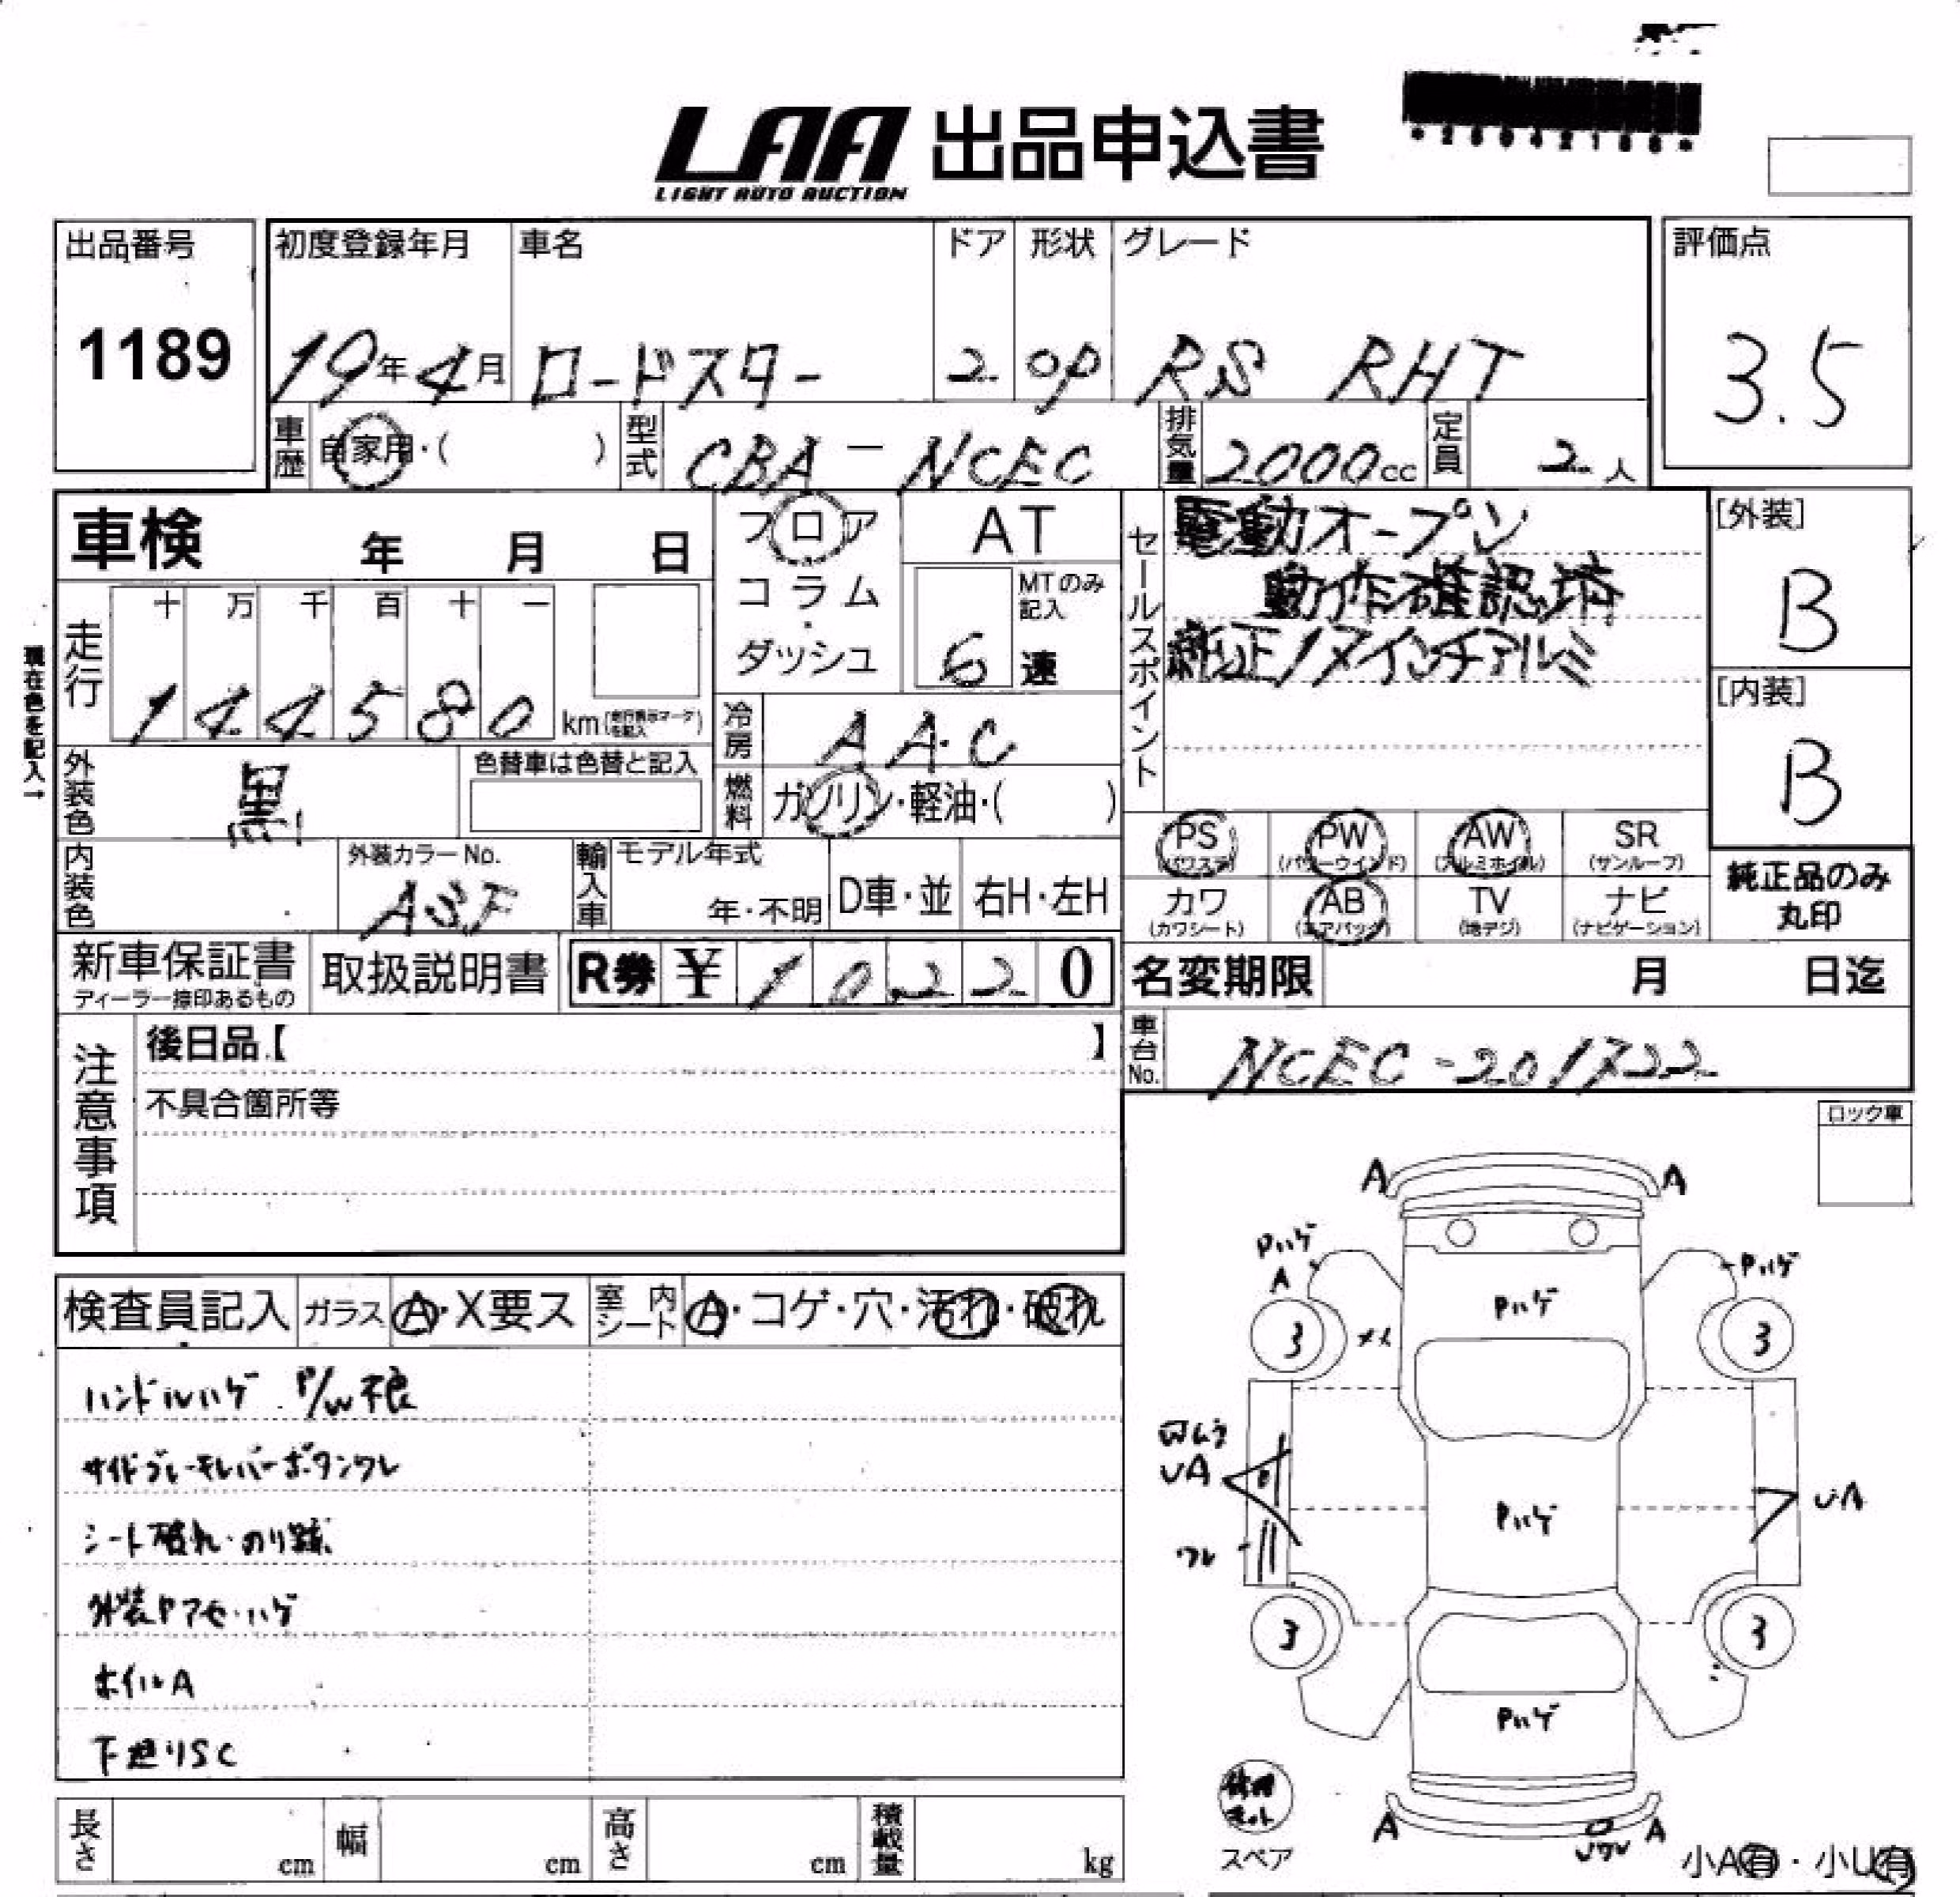 LAA 出品申込書
LIGHT AUTO AUCTION
出品番号
1189
初度登録年月
19年4月
車名
ロードスター
ドア
2
形状
OP
グレード
RS RHT
評価点
3.5
車歴
自家用・( )
型式
CBA-NCEC
排気量
2000cc
定員
2人
車検 年 月 日
フロア
コラム
・
ダッシュ
AT
MTのみ
記入
6 速
セールスポイント
電動オープン
動作確認済
純正17インチアルミ
[外装]
B
[内装]
B
現在色を記入→
走行
十 万 千 百 十 一
1 4 4 5 8 0 km(走行表示マークを記入)
冷房
AAC
外装色
黒
色替車は色替と記入
燃料
ガソリン・軽油・( )
PS
(パワステ)
PW
(パワーウインド)
AW
(アルミホイル)
SR
(サンルーフ)
カワ
(カワシート)
AB
(エアバッグ)
TV
(地デジ)
ナビ
(ナビゲーション)
純正品のみ
丸印
内装色
外装カラーNo.
輸入車
モデル年式
年・不明
D車・並
右H・左H
新車保証書
ディーラー捺印あるもの
取扱説明書
R券 ¥ 1 0 2 2 0
名変期限 月 日迄
注意事項
後日品【 】
不具合箇所等
車台No.
NCEC-201722
ロック車
検査員記入
ガラス
A・X要ス
室内シート
A・コゲ・穴・汚れ・破れ
ハンドルハゲ P/W不良
サイドブレーキレバーボタンワレ
シート破れ・のり跡
外装Pアセ・ハゲ
ホイルA
下廻りSC
A A
Pハゲ
A
Pハゲ
Pハゲ
3 3
メイ
UA
Pハゲ
UA
ワレ
3 3
Pハゲ
修理
キット
スペア
A A
小A有・小U有
長さ cm
幅 cm
高さ cm
積載量 kg